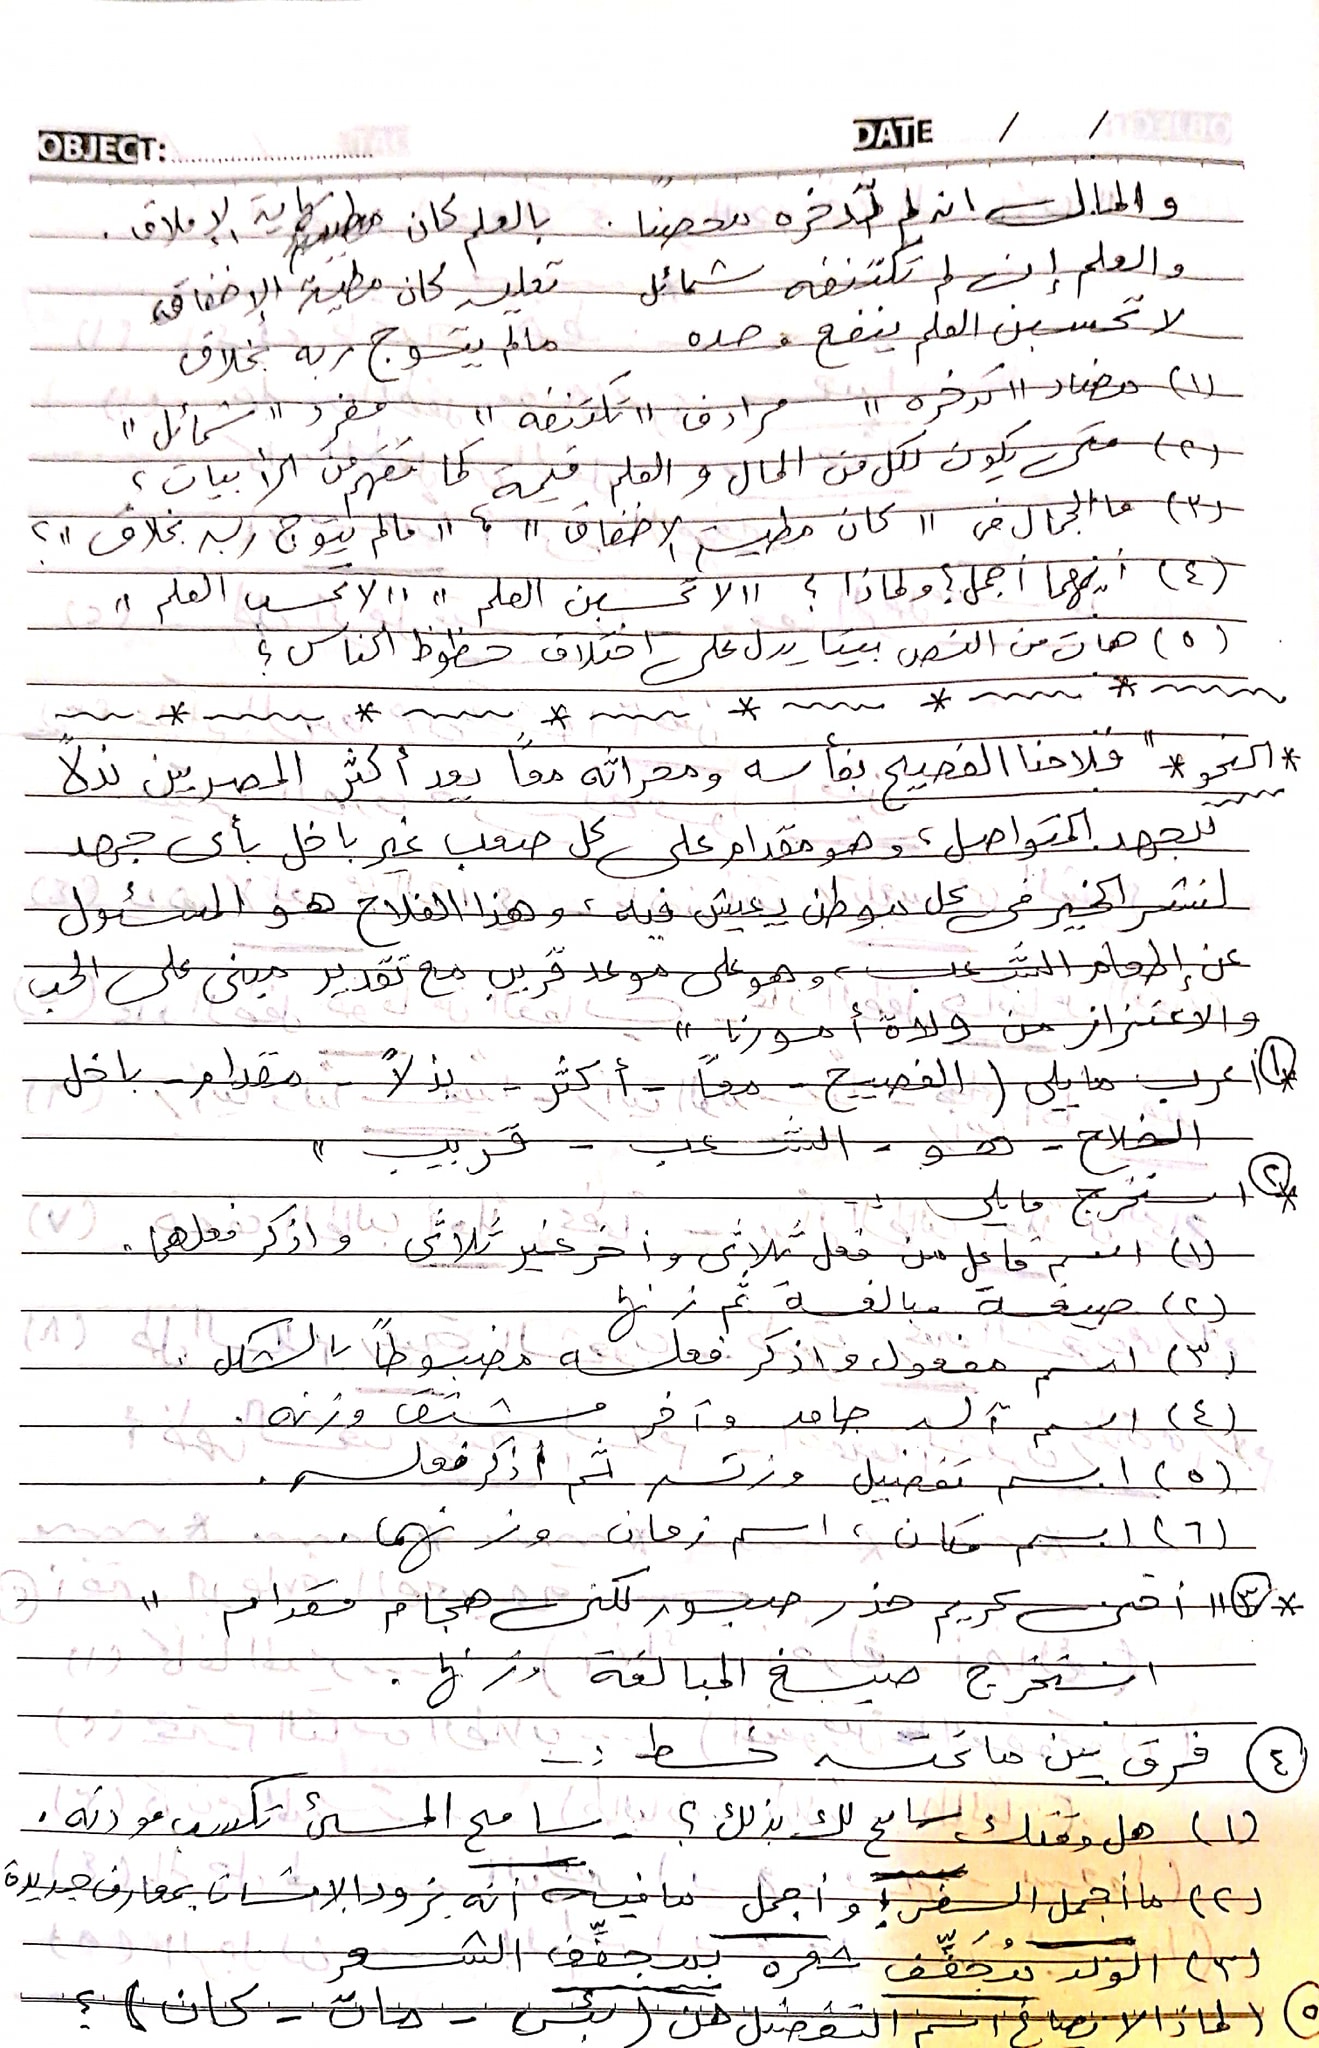 OBJECT: DATE / /
والمال إن لم تدخره محصنا . بالعلم كان نهاية الإملاق .
والعلم إن لم تكتنفه شمائل تعليه كان مطية الإخفاق
لا تحسبن العلم ينفع وحده مالم يتوج ربه بخلاق
(١) مضاد "تدخره" مرادف "تكتنفه" مفرد "شمائل"
(٢) متى يكون لكل من المال و العلم قيمة كما تفهم من الأبيات ؟
(٣) ما الجمال في "كان مطية الإخفاق" ، "مالم يتوج ربه بخلاق"؟
(٤) أيهما أجمل؟ ولماذا ؟ "لا تحسبن العلم" "لا تحسب العلم"
(٥) هات من النص بيتا يدل على اختلاف حظوظ الناس ؟
* النحو * "فلاحنا الفصيح بفأسه ومحراثه معاً يعد أكثر المصريين بذلاً
للجهد المتواصل، وهو مقدام على كل صعب غير باخل بأى جهد
لنشر الخير فى كل موطن يعيش فيه، وهذا الفلاح هو المسئول
عن إطعام الشعب، وهو على موعد قريب مع تقدير مبنى على الحب
والاعتزاز من ولاة أمورنا "
* ١ أعرب مايلى ( الفصيح - معاً - أكثر - بذلاً - مقدام - باخل
الفلاح - هو - الشعب - قريب "
* ٢ استخرج مايلى :-
(١) اسم فاعل من فعل ثلاثى وآخر غير ثلاثى واذكر فعلهما.
(٢) صيغة مبالغة ثم زنها
(٣) اسم مفعول واذكر فعله مضبوطاً بالشكل .
(٤) اسم آلة جامد وآخر مشتق وزنه .
(٥) اسم تفضيل وزنه ثم اذكر فعله .
(٦) اسم مكان ، اسم زمان وزنهما .
* ٣ " أخى كريم حذر صبور لكنى هجام مقدام "
استخرج صيغ المبالغة وزنها .
٤ فرق بين ماتحته خط :-
(١) هل وقتك سامح لك بذلك ؟ - سامح المسئ تكسب مودته .
(٢) ما أجمل السفر! وأجمل مافيه أنه يزود الإنسان بمعارف جديدة
(٣) الولد مُجَفَّف شعره بمجفِّف الشعر
٥ لماذا لا يصاغ اسم التفضيل من (بئس - مات - كان) ؟